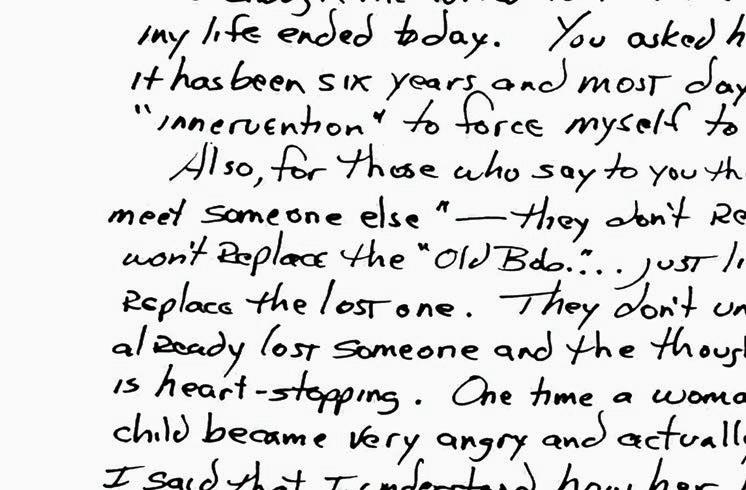 my life ended today. You asked h
it has been six years and most day
"innervention" to force myself to
Also, for those who say to you th
meet someone else" — they don't Re
won't Replace the "Old Bob."... just li
Replace the lost one. They don't un
already lost someone and the thoug
is heart-stopping. One time a woma
child became very angry and actuall
I said that I understand how her